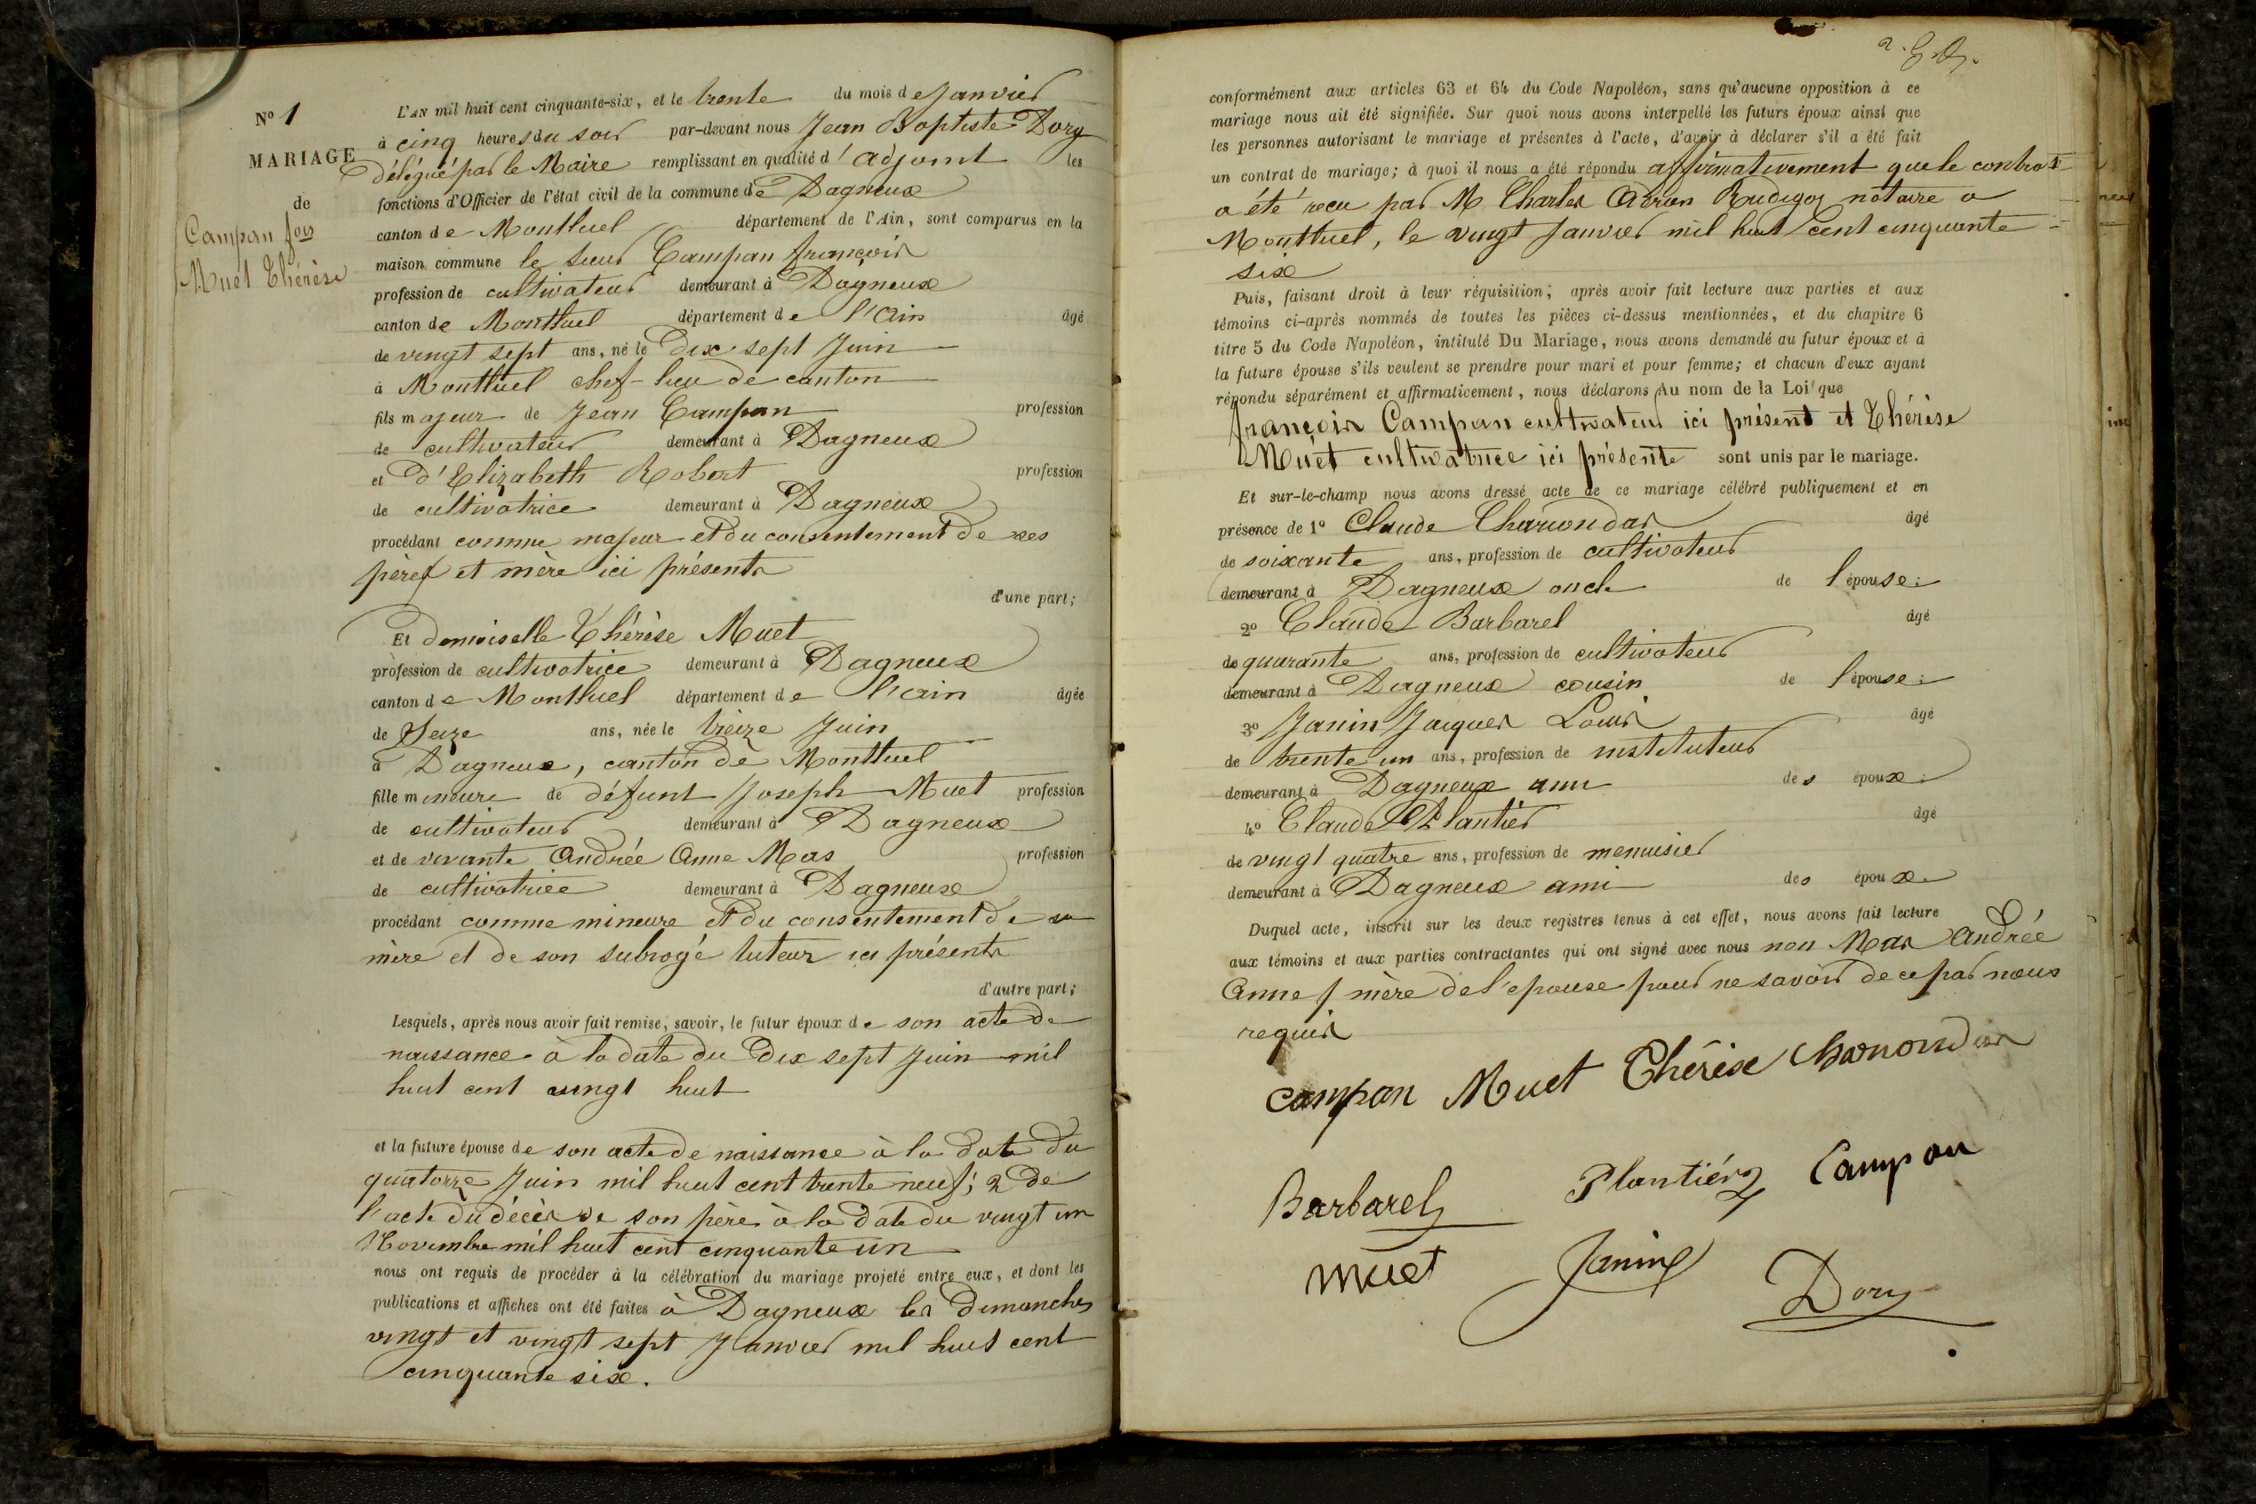 N° 1
MARIAGE
de
Campan fois
Muet Thérèse
L'AN mil huit cent cinquante-six, et le trente du mois de Janvier
à cinq heures du soir par-devant nous Jean Baptiste Dory
délégué par le Maire remplissant en qualité d'adjoint les
fonctions d'Officier de l'état civil de la commune de Dagneux
canton de Montluel département de l'Ain, sont comparus en la
maison commune le sieur Campan françois
profession de cultivateur demeurant à Dagneux
canton de Montluel département de l'Ain âgé
de vingt sept ans, né le dix sept Juin
à Montluel chef-lieu de canton
fils majeur de Jean Campan profession
de cultivateur demeurant à Dagneux
et d'Elizabeth Robert profession
de cultivatrice demeurant à Dagneux
procédant comme majeur et du consentement de ses
père et mère ici présents
d'une part;
Et demoiselle Thérèse Muet
profession de cultivatrice demeurant à Dagneux
canton de Montluel département de l'Ain âgée
de Seize ans, née le treize Juin
à Dagneux, canton de Montluel
fille mineure de défunt Joseph Muet profession
de cultivateur demeurant à Dagneux
et de vivante Andrée Anne Mas profession
de cultivatrice demeurant à Dagneux
procédant comme mineure et du consentement de sa
mère et de son subrogé tuteur ici présents
d'autre part;
Lesquels, après nous avoir fait remise, savoir, le futur époux de son acte de
naissance à la date du dix sept Juin mil
huit cent vingt huit
et la future épouse de son acte de naissance à la date du
quatorze Juin mil huit cent trente neuf; 2 de
l'acte du décès de son père à la date du vingt un
Novembre mil huit cent cinquante un
nous ont requis de procéder à la célébration du mariage projeté entre eux, et dont les
publications et affiches ont été faites à Dagneux les dimanches
vingt et vingt sept Janvier mil huit cent
cinquante six.
conformément aux articles 63 et 64 du Code Napoléon, sans qu'aucune opposition à ce
mariage nous ait été signifiée. Sur quoi nous avons interpellé les futurs époux ainsi que
les personnes autorisant le mariage et présentes à l'acte, d'avoir à déclarer s'il a été fait
un contrat de mariage; à quoi il nous a été répondu affirmativement que le contrat
a été reçu par M Charles Adrien Rudigoz notaire a
Montluel, le vingt Janvier mil huit cent cinquante
six
Puis, faisant droit à leur réquisition; après avoir fait lecture aux parties et aux
témoins ci-après nommés de toutes les pièces ci-dessus mentionnées, et du chapitre 6
titre 5 du Code Napoléon, intitulé Du Mariage, nous avons demandé au futur époux et à
la future épouse s'ils veulent se prendre pour mari et pour femme; et chacun d'eux ayant
répondu séparément et affirmativement, nous déclarons Au nom de la Loi que
françois Campan cultivateur ici présent et Thérèse
Muet cultivatrice ici présente sont unis par le mariage.
Et sur-le-champ nous avons dressé acte de ce mariage célébré publiquement et en
présence de 1° Claude Charwondas âgé
de soixante ans, profession de cultivateur
demeurant à Dagneux oncle de l'épouse.
2° Claude Barbarel âgé
de quarante ans, profession de cultivateur
demeurant à Dagneux cousin de l'épouse.
3° Janin Jacques Louis âgé
de trente un ans, profession de instituteur
demeurant à Dagneux ami des époux.
4° Claude Plantier âgé
de vingt quatre ans, profession de menuisier
demeurant à Dagneux ami des époux.
Duquel acte, inscrit sur les deux registres tenus à cet effet, nous avons fait lecture
aux témoins et aux parties contractantes qui ont signé avec nous non Mas Andrée
Anne mère de l'épouse pour ne savoir de ce par nous
requis
campan Muet Thérèse
Barbarel Plantier Campan
Muet Janin
Dory